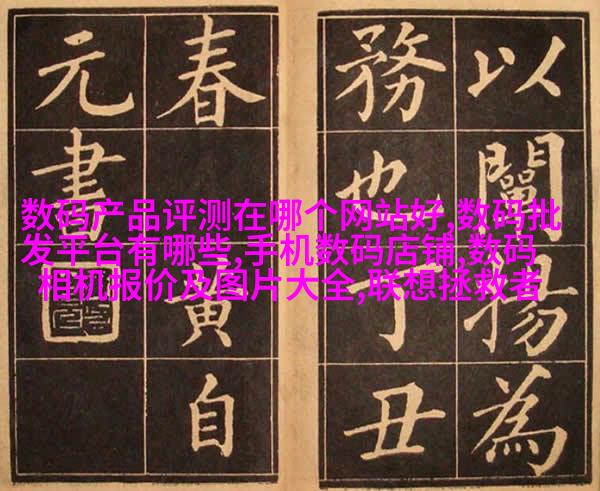 以闡揚為
務也丁丑
春
黃自
元書
数码产品评测在哪个网站好,数码批
发平台有哪些,手机数码店铺,数码
相机报价及图片大全,联想拯救者